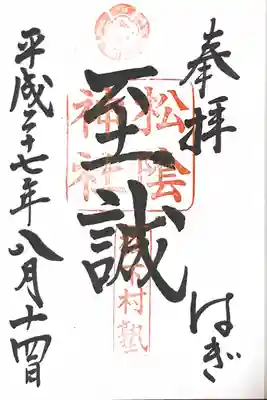 奉拝
はぎ
至誠
松陰
神社
村塾
平成二十七年八月十四日